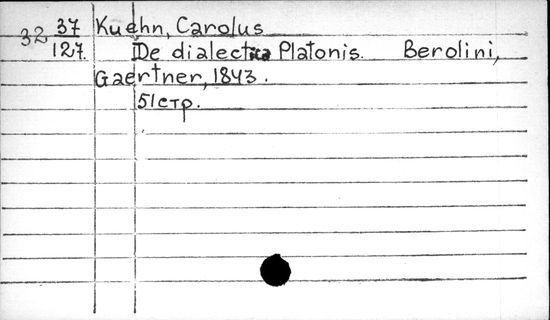 32 37/127. Kuehn, Carolus
De dialectica Platonis. Berolini,
Gaertner, 1843.
51 стр.